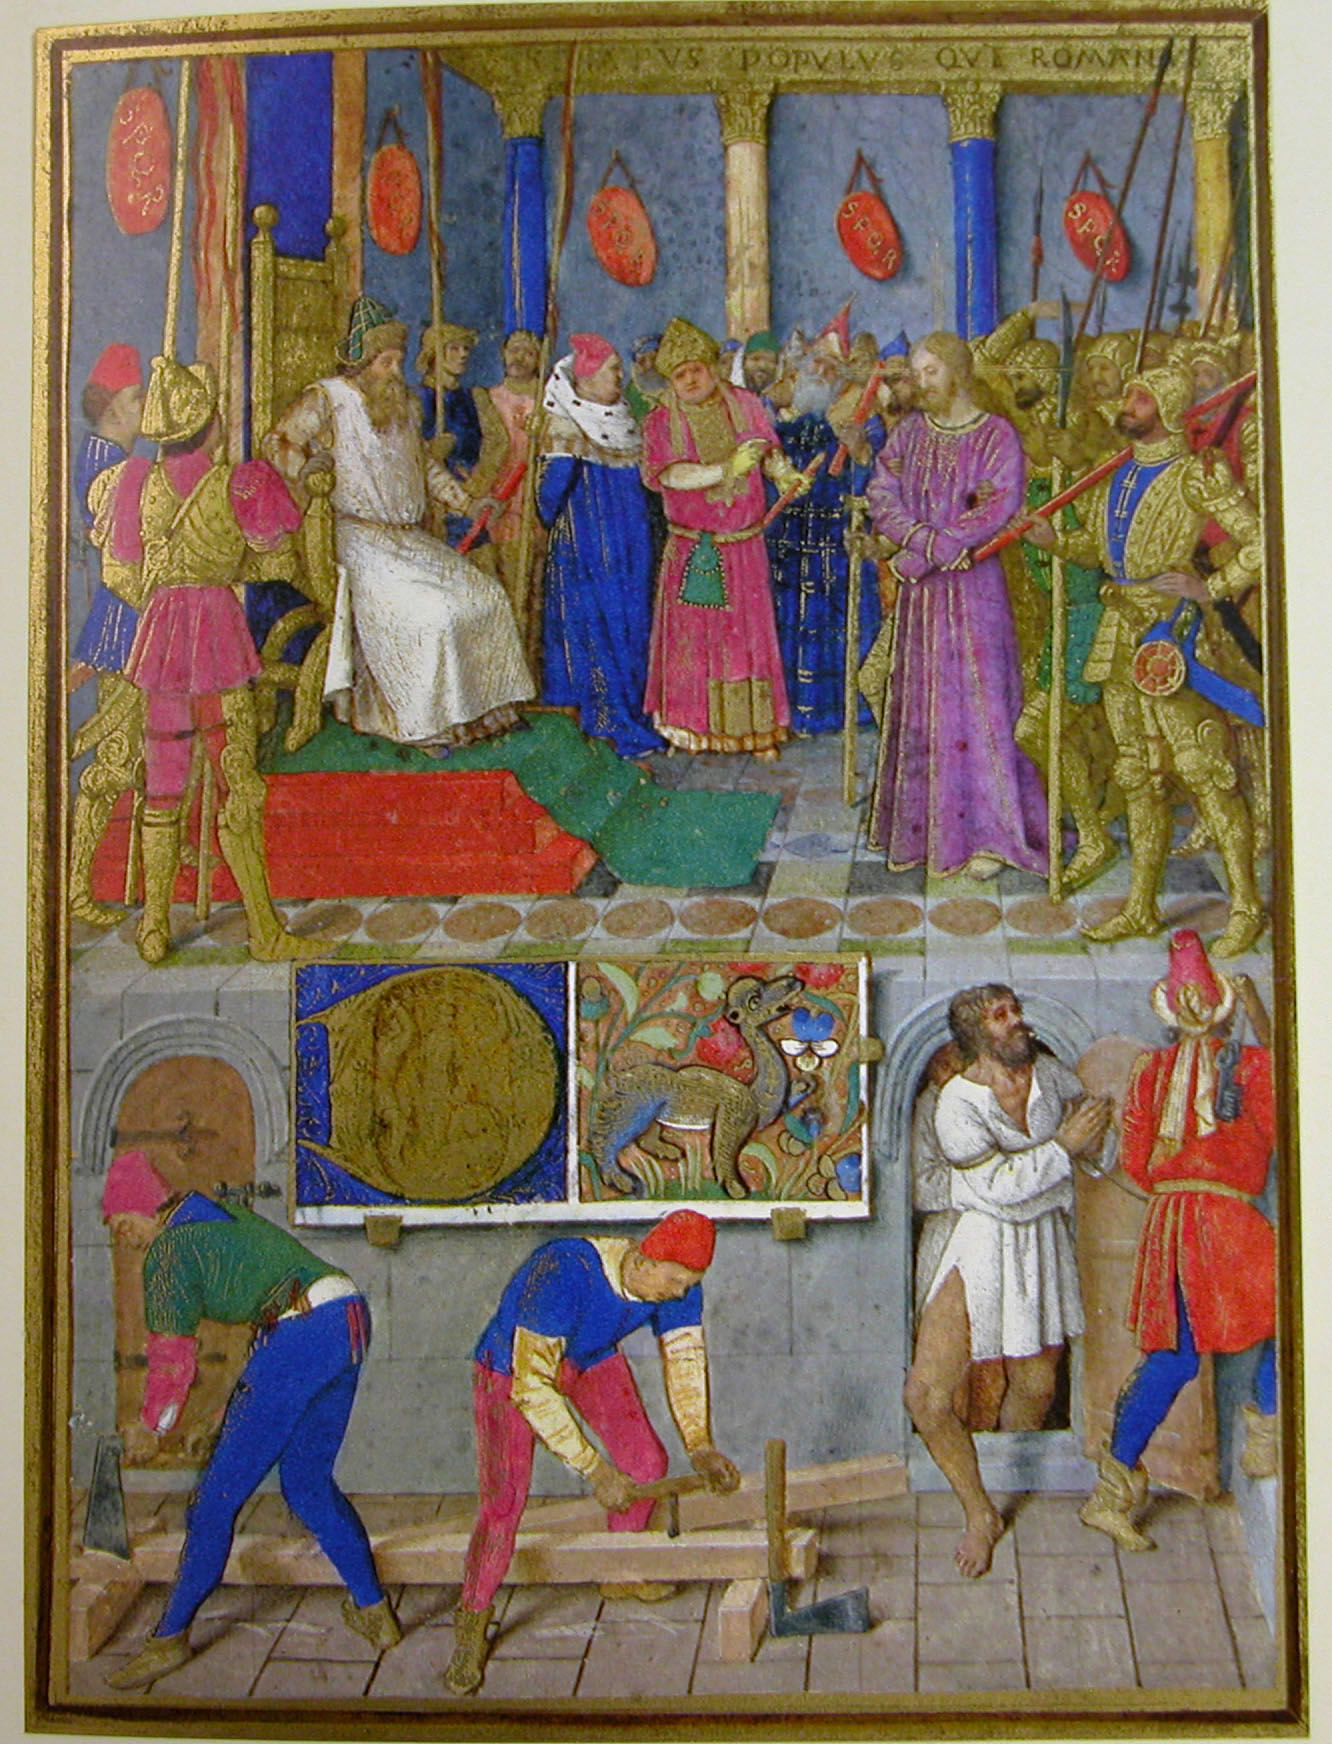 POPVLVS QVE ROMANVS
SPQR
SPQR
SPQR
SPQR
SPQR